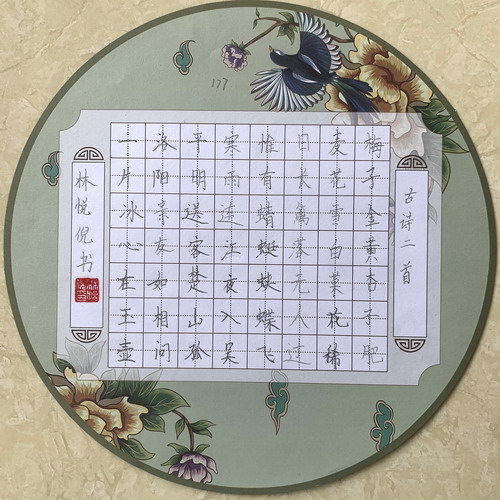 177
古诗二首
梅子金黄杏子肥
麦花雪白菜花稀
日长篱落无人过
惟有蜻蜓蛱蝶飞
寒雨连江夜入吴
平明送客楚山孤
洛阳亲友如相问
一片冰心在玉壶
林悦倪书